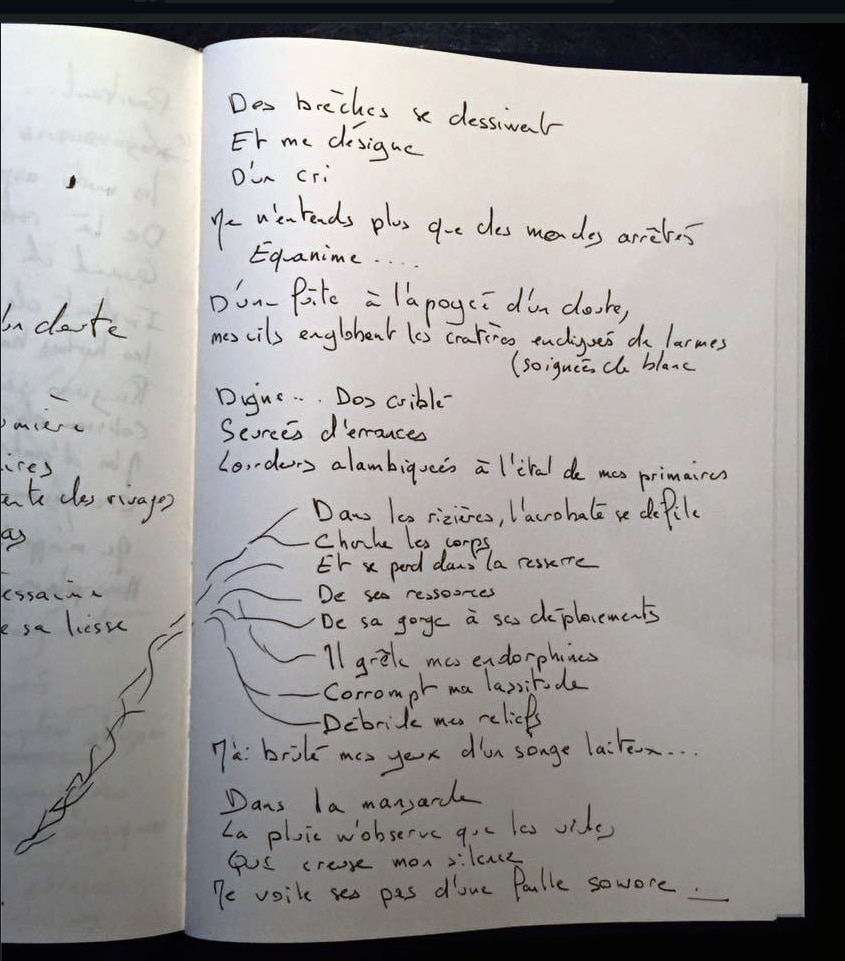 un doute
mière
ires
ente des rivages
as
essaime
e sa liesse
Des brèches se dessinent
Et me désigne
D'un cri
Je n'entends plus que des mondes arrêtés
Equanime ....
D'une fuite à l'apogée d'un doute,
mes cils englobent les cratères endigués de larmes
(soignées de blanc
Digne... Dos criblé
Sevrés d'errances
Lourdeurs alambiquées à l'étal de mes primaires
Dans les rizières, l'acrobate se défile
Cherche les corps
Et se perd dans la resserre
De ses ressources
De sa gorge à ses déploiements
Il grêle mes endorphines
Corrompt ma lassitude
Débride mes reliefs
J'ai brûlé mes yeux d'un songe laiteux...
Dans la mansarde
La pluie n'observe que les vides
Que creuse mon silence
Je voile ses pas d'une faille sonore .